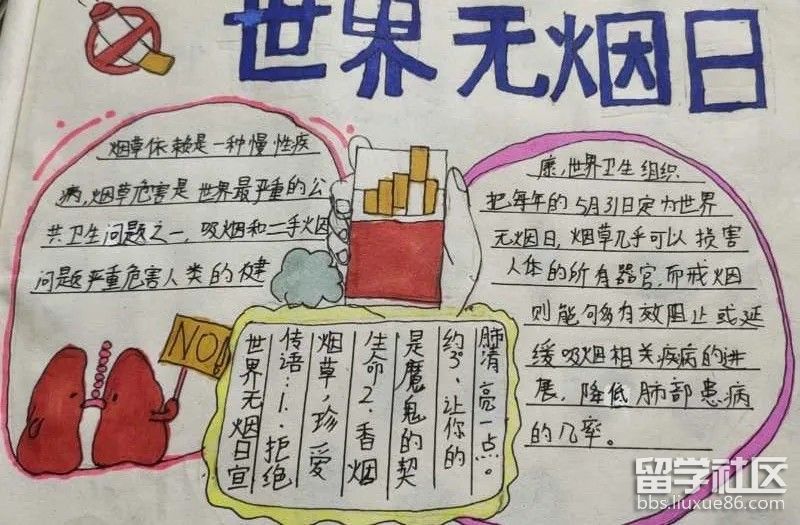 世界无烟日
烟草依赖是一种慢性疾
病,烟草危害是世界最严重的公
共卫生问题之一,吸烟和二手烟
问题严重危害人类的健
康,世界卫生组织
把每年的5月31日定为世界
无烟日,烟草几乎可以损害
人体的所有器官,而戒烟
则能够有效阻止或延
缓吸烟相关疾病的进
展,降低肺部患病
的几率。
NO!
世界无烟日宣
传语:1.拒绝
烟草,珍爱
生命2.香烟
是魔鬼的契
约3.让你的
肺清亮一点。
留学社区
bbs.liuxue86.com